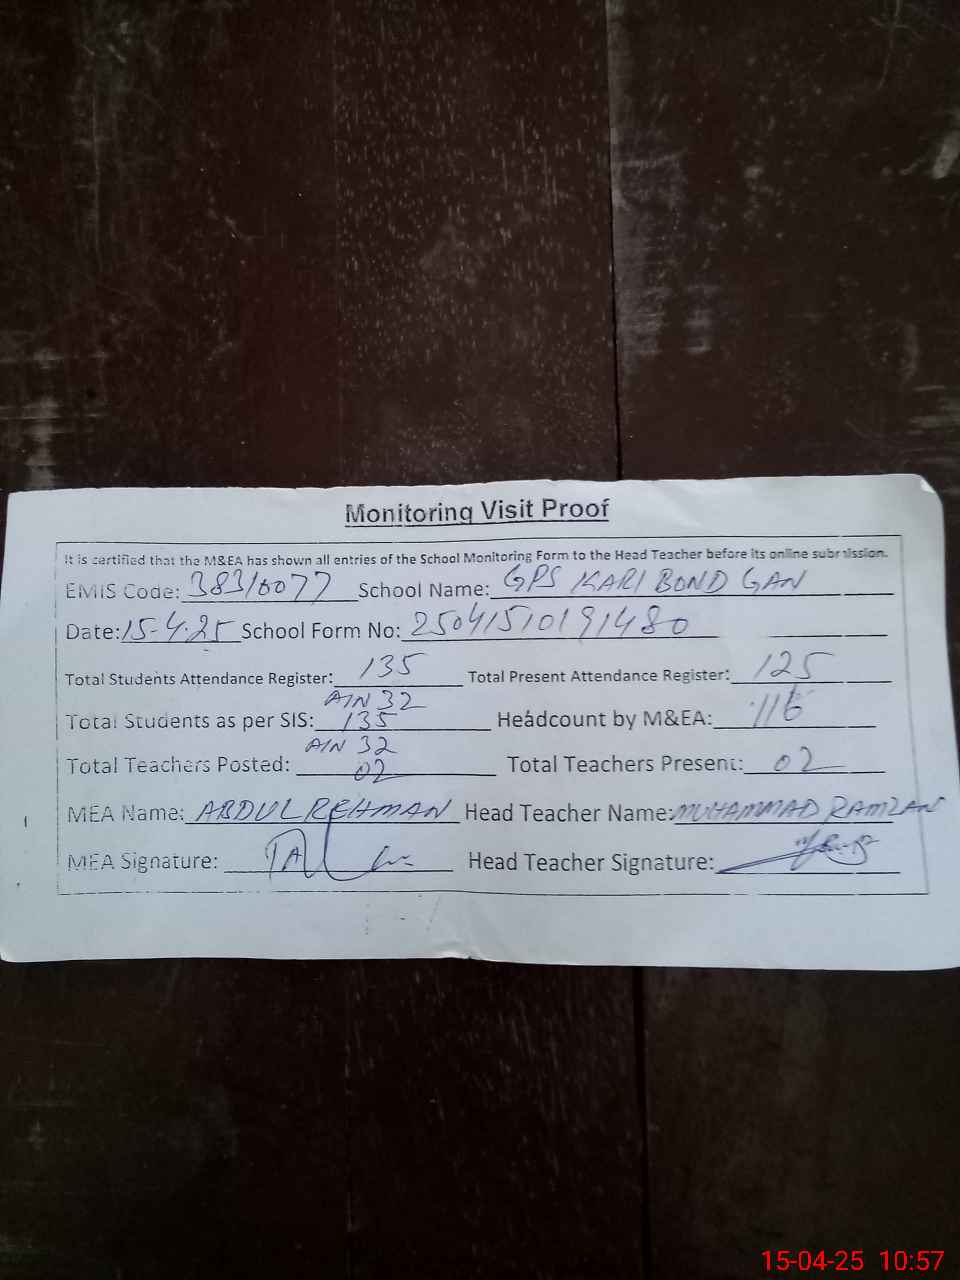 Monitoring Visit Proof
It is certified that the M&EA has shown all entries of the School Monitoring Form to the Head Teacher before its online submission.
EMIS Code: 38316077 School Name: GPS KARI BOND GAN
Date: 15-4-25 School Form No: 25041510191480
Total Students Attendance Register: 135 Total Present Attendance Register: 125
A/N 32
Total Students as per SIS: 135 Headcount by M&EA: 116
A/N 32
Total Teachers Posted: 02 Total Teachers Present: 02
MEA Name: ABDUL REHMAN Head Teacher Name: MUHAMMAD RAMZAN
MEA Signature: Head Teacher Signature:
15-04-25 10:57